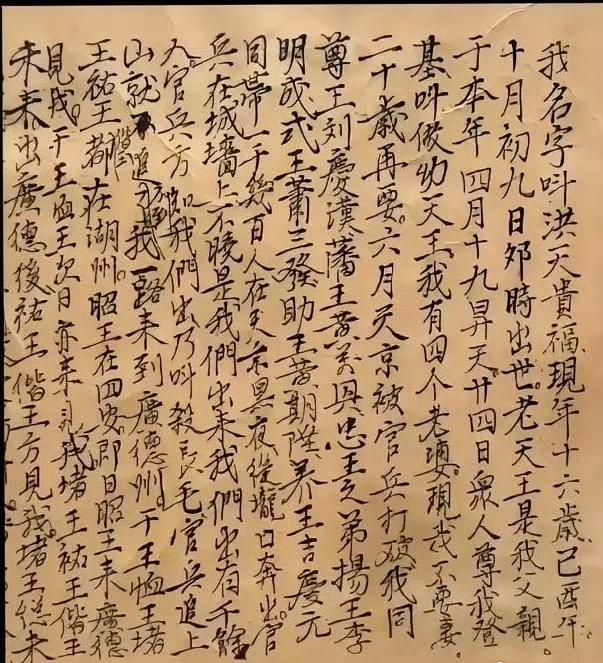 我名字叫洪天貴福現年十六歲己酉年
十月初九日卯時出世老天王是我父親
于本年四月十九昇天廿四日眾人尊我登
基叫做幼天王我有四个老婆現我不要妻
二十歲再要六月天京被官兵打破我同
尊王刘慶漢藩王黃萬興忠王之弟揚王李
明成式王蕭三發助王黃期陞养王吉慶元
同帶一千幾百人在天京黑夜從壠口奔出官
兵在城墻上不曉是我們出來我們出有千餘
人官兵方知我們出乃叫殺長毛官兵追上
山就不追我一路來到廣德州干王恤王堵
王祐王偕王都在湖州昭王在四安即日昭王來廣德
見我干王恤王次日亦來見我堵王祐王偕王
未來出廣德後祐王偕王方見我堵王總未